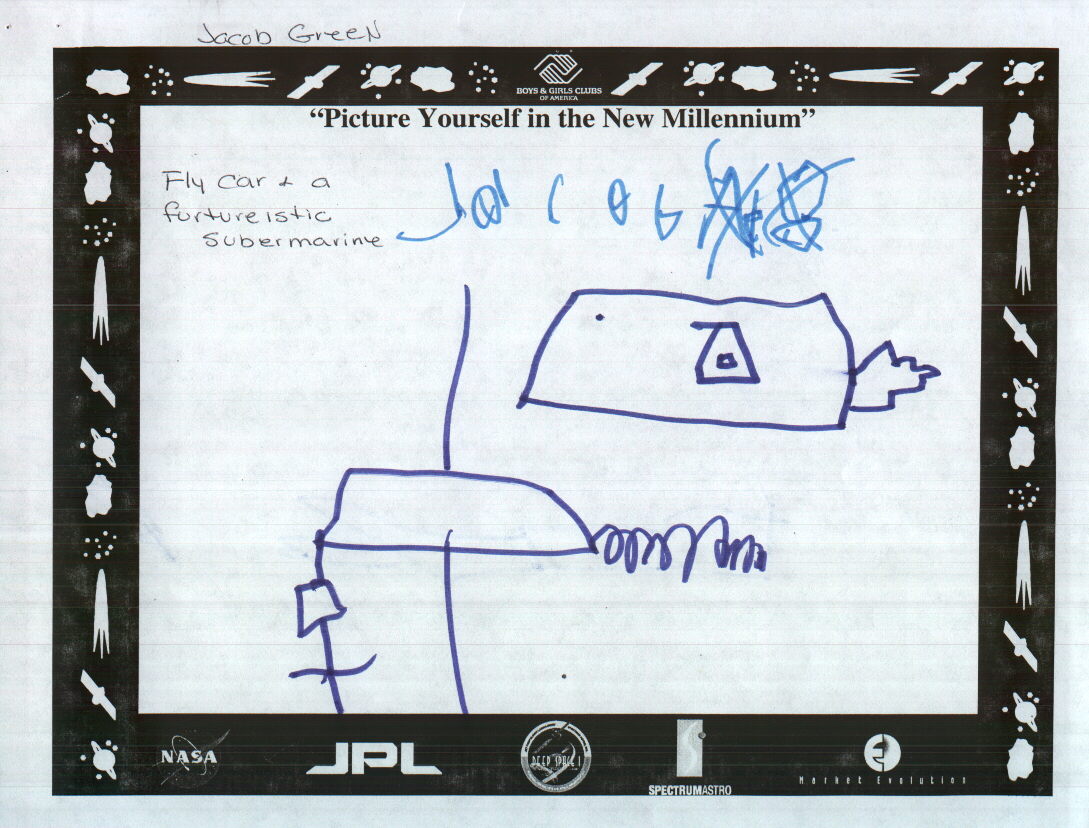 Jacob Green
BOYS & GIRLS CLUBS
OF AMERICA
“Picture Yourself in the New Millennium”
Fly car & a
furtureistic
submarine
Jacob
NASA
JPL
DEEP SPACE 1
SPECTRUMASTRO
Market Evolution